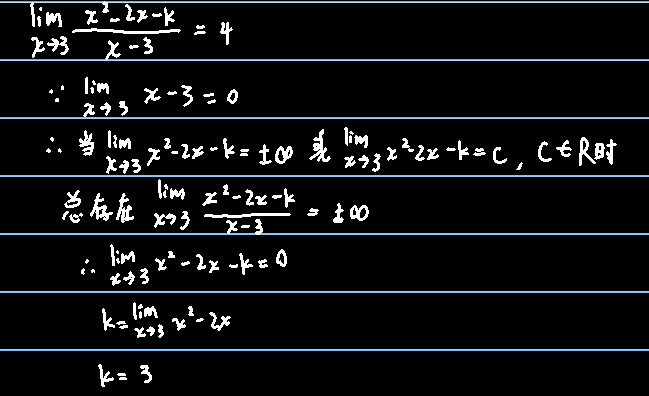 lim x→3 (x²-2x-k)/(x-3) = 4
∵ lim x→3 x-3=0
∴ 当 lim x→3 x²-2x-k=±∞ 或 lim x→3 x²-2x-k=C, C∈R时
总存在 lim x→3 (x²-2x-k)/(x-3) = ±∞
∴ lim x→3 x²-2x-k=0
k=lim x→3 x²-2x
k=3